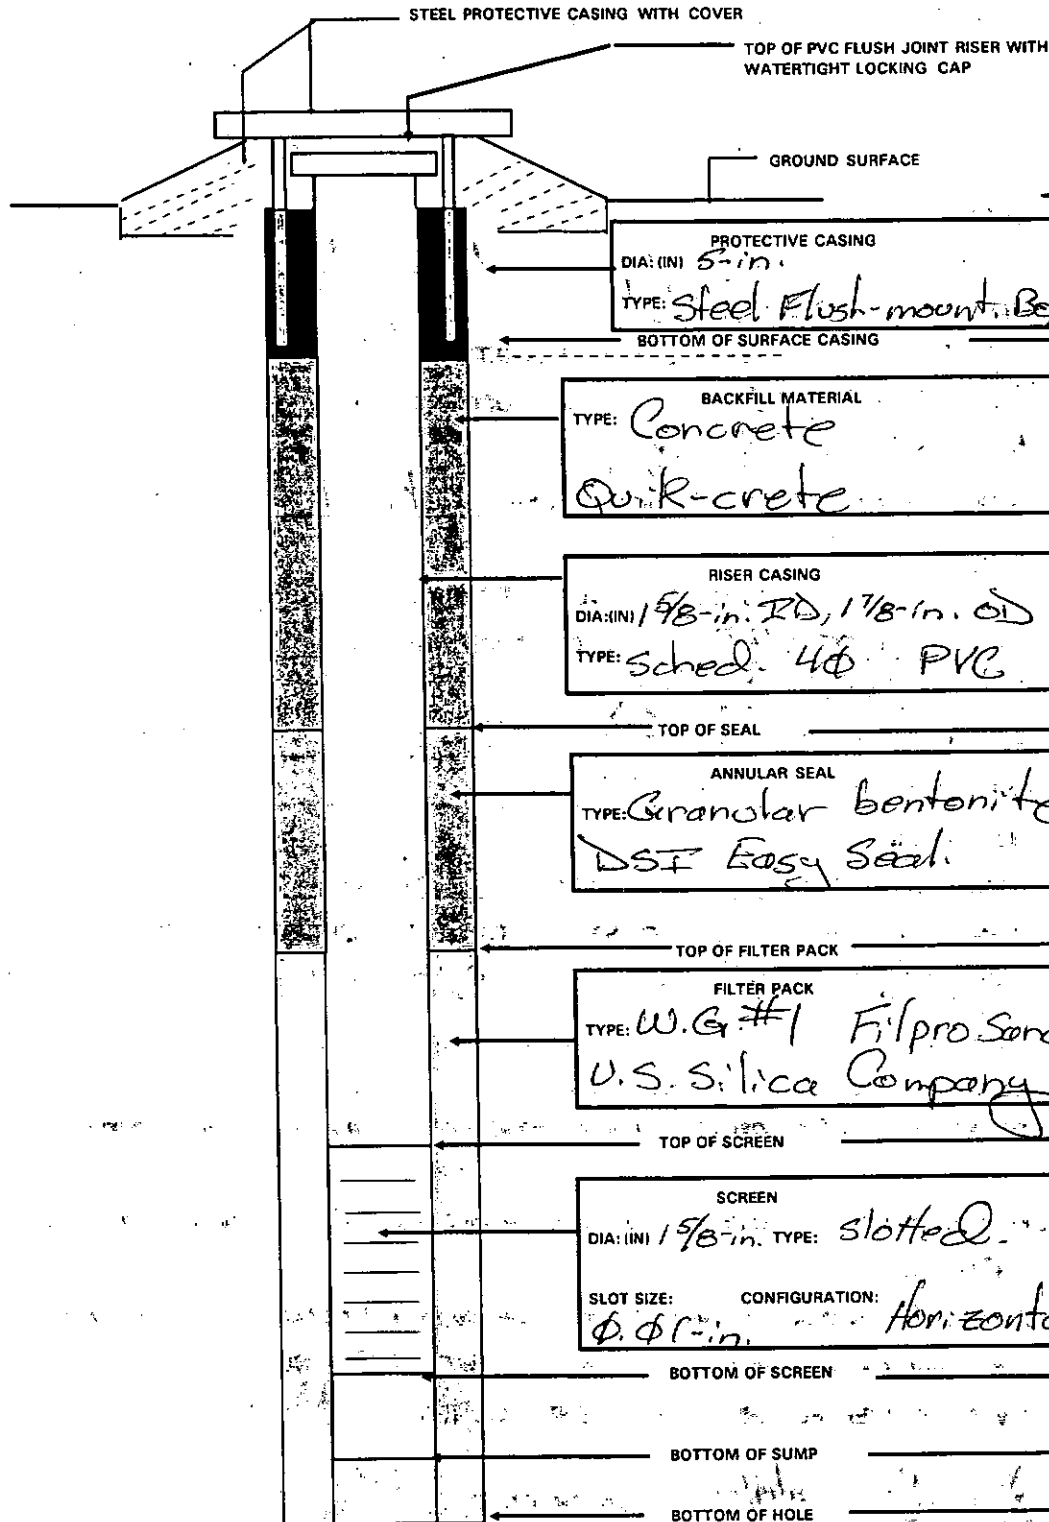 STEEL PROTECTIVE CASING WITH COVER
TOP OF PVC FLUSH JOINT RISER WITH
WATERTIGHT LOCKING CAP
GROUND SURFACE
PROTECTIVE CASING
DIA: (IN) 5-in.
TYPE: Steel Flush-mount
BOTTOM OF SURFACE CASING
BACKFILL MATERIAL
TYPE: Concrete
Quik-crete
RISER CASING
DIA:(IN) 1 5/8-in. ID, 1 7/8-in. OD
TYPE: Sched. 4Ø PVC
TOP OF SEAL
ANNULAR SEAL
TYPE: Granular bentonite
DSI Easy Seal.
TOP OF FILTER PACK
FILTER PACK
TYPE: W.G. #1 Filpro
U.S. Silica Company
TOP OF SCREEN
SCREEN
DIA: (IN) 1 5/8-in. TYPE: Slotted.
SLOT SIZE: CONFIGURATION:
Ø.Ø1-in.
BOTTOM OF SCREEN
BOTTOM OF SUMP
BOTTOM OF HOLE